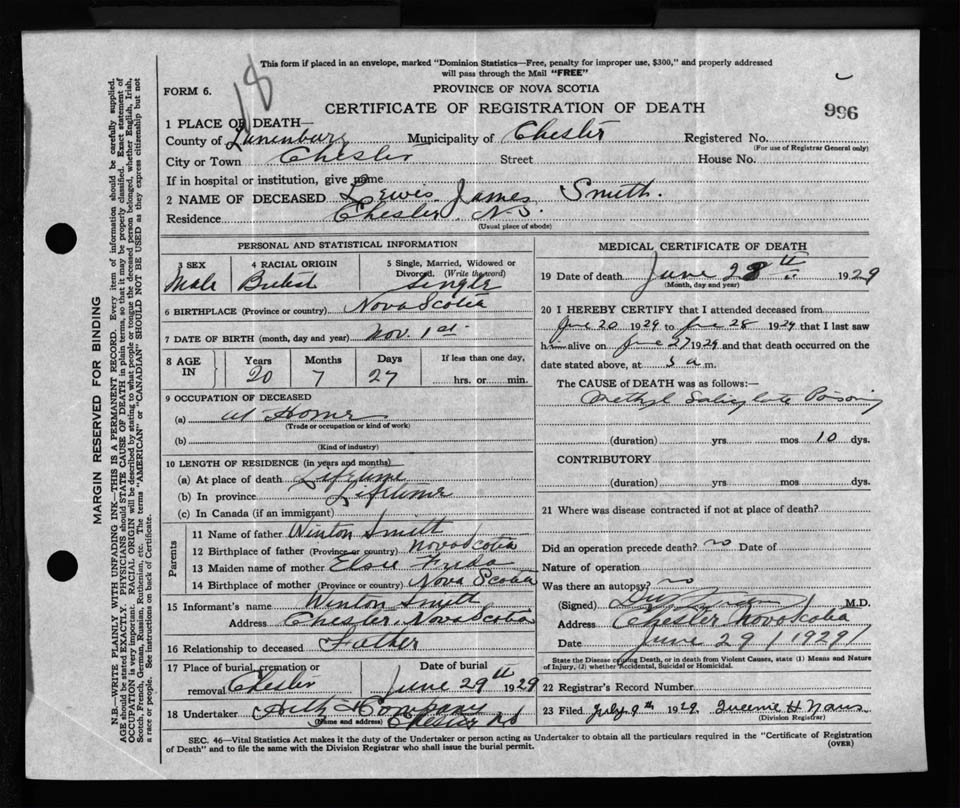 This form if placed in an envelope, marked "Dominion Statistics—Free, penalty for improper use, $300," and properly addressed
will pass through the Mail "FREE"
18
FORM 6.
PROVINCE OF NOVA SCOTIA
996
CERTIFICATE OF REGISTRATION OF DEATH
1 PLACE OF DEATH—
County of Lunenburg Municipality of Chester Registered No.
(For use of Registrar General only)
City or Town Chester Street House No.
If in hospital or institution, give name
2 NAME OF DECEASED Lewis James Smith.
Residence Chester N.S.
(Usual place of abode)
PERSONAL AND STATISTICAL INFORMATION
3 SEX 4 RACIAL ORIGIN 5 Single, Married, Widowed or
Divorced. (Write the word)
Male British Single
6 BIRTHPLACE (Province or country) Nova Scotia
7 DATE OF BIRTH (month, day and year) Nov. 1st.
8 AGE IN Years Months Days If less than one day,
20 7 27 hrs. or min.
9 OCCUPATION OF DECEASED
(a) at Home
(Trade or occupation or kind of work)
(b)
(Kind of industry)
10 LENGTH OF RESIDENCE (in years and months)
(a) At place of death Lifetime
(b) In province Lifetime
(c) In Canada (if an immigrant)
Parents
11 Name of father Winton Smith
12 Birthplace of father (Province or country) Nova Scotia
13 Maiden name of mother Elsie
14 Birthplace of mother (Province or country) Nova Scotia
15 Informant's name Winton Smith
Address Chester, Nova Scotia
16 Relationship to deceased Father
17 Place of burial, cremation or Date of burial
removal Chester June 29th 1929
18 Undertaker Company
(Name and address) Chester NS
MEDICAL CERTIFICATE OF DEATH
19 Date of death June 28th 1929
(Month, day and year)
20 I HEREBY CERTIFY that I attended deceased from
June 20 1929 to June 28 1929 that I last saw
h alive on June 27 1929 and that death occurred on the
date stated above, at 5 a m.
The CAUSE OF DEATH was as follows:—
Methyl Salicylate Poisoning
(duration) yrs mos 10 dys.
CONTRIBUTORY
(duration) yrs. mos. dys.
21 Where was disease contracted if not at place of death?
Did an operation precede death? no Date of
Nature of operation
Was there an autopsy? no
(Signed) M.D.
Address Chester Nova Scotia
Date June 29 / 1929 /
State the Disease causing Death, or in death from Violent Causes, state (1) Means and Nature
of Injury, (2) whether Accidental, Suicidal or Homicidal.
22 Registrar's Record Number
23 Filed July 9th 1929 Queenie H
(Division Registrar)
SEC. 46—Vital Statistics Act makes it the duty of the Undertaker or person acting as Undertaker to obtain all the particulars required in the "Certificate of Registration
of Death" and to file the same with the Division Registrar who shall issue the burial permit.
(OVER)
MARGIN RESERVED FOR BINDING
N.B.—WRITE PLAINLY WITH UNFADING INK—THIS IS A PERMANENT RECORD. Every item of information should be carefully supplied.
AGE should be stated EXACTLY. PHYSICIANS should STATE CAUSE OF DEATH in plain terms, so that it may be properly classified. Exact statement of
OCCUPATION is very important. RACIAL ORIGIN will be described by stating to what people or tongue the deceased person belonged, whether English, Irish,
Scotch, French, German, Russian, Ruthenian, etc. The terms "AMERICAN" or "CANADIAN" SHOULD NOT BE USED as they express citizenship but not
a race or people. See instructions on back of Certificate.